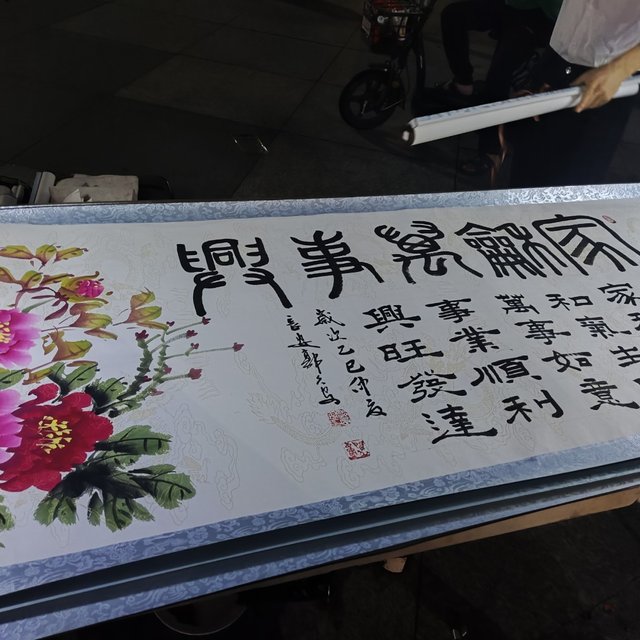 家龢萬事興
家
和氣生
萬事如意
事業順利
興旺發達
歲次乙巳仲夏